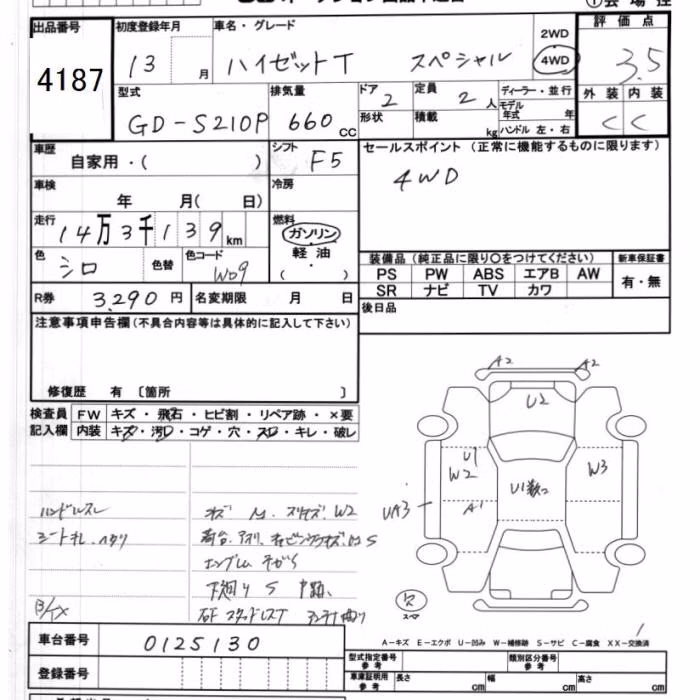 出品番号
4187
初度登録年月
13 月
車名・グレード
ハイゼットT スペシャル
2WD
4WD
評価点
3.5
外装 内装
C C
型式
GD-S210P
排気量
660 cc
ドア
2
形状
定員
2 人
積載 kg
ディーラー・並行
モデル年式 年
ハンドル 左・右
車歴
自家用・( )
シフト
F5
セールスポイント(正常に機能するものに限ります)
4WD
車検
年 月( 日)
冷房
走行
14万3千139km
燃料
ガソリン
軽油
( )
色
シロ
色替
色コード
W09
装備品(純正品に限り○をつけてください)
新車保証書
PS PW ABS エアB AW
SR ナビ TV カワ
有・無
R券
3,290円
名変期限 月 日
後日品
注意事項申告欄(不具合内容等は具体的に記入して下さい)
修復歴 有〔箇所 〕
検査員記入欄
FW キズ・飛石・ヒビ割・リペア跡・×要
内装 キズ・汚れ・コゲ・穴・スレ・キレ・破レ
ハンドルスレ
シートキレ、ヘタリ
下廻り S
A2 A2
U2
U1
W2
A1
UA3
U1数コ
W3
A-キズ E-エクボ U-凹み W-補修跡 S-サビ C-腐食 XX-交換済
車台番号
0125130
登録番号
型式指定番号 参考
類別区分番号 参考
車庫証明用 参考
長さ cm
幅 cm
高さ cm